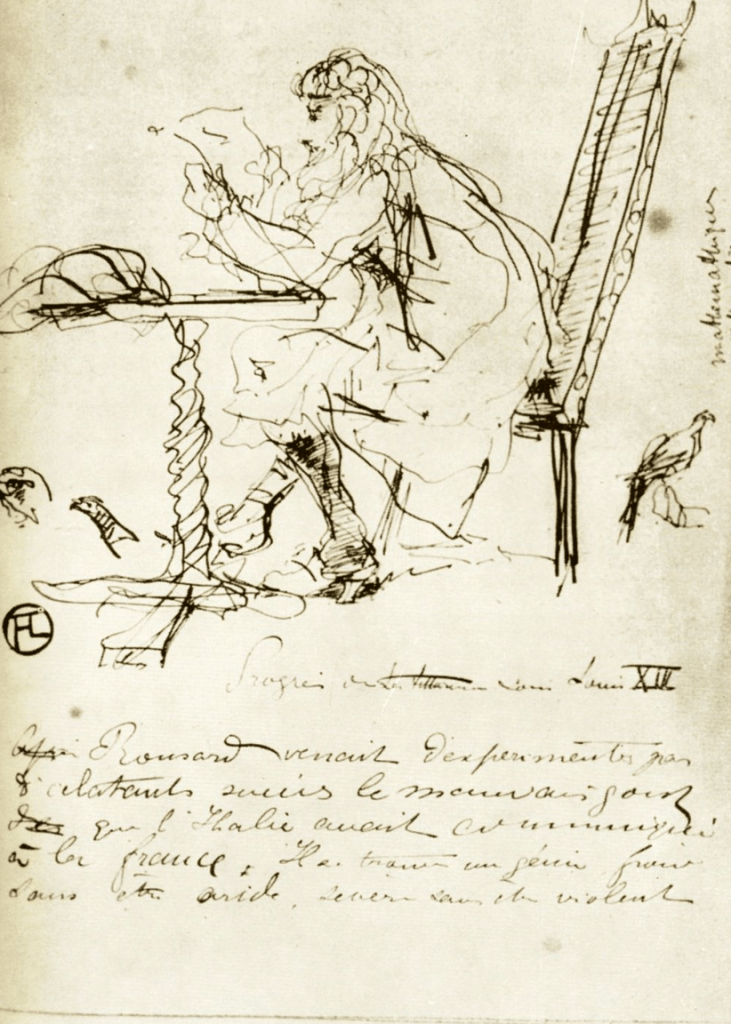 mathematiques
HTL
Progrès de la litterature sous Louis XIII
Ronsard venait d'experimenter par
d'eclatants succès le mauvais gout
que l'Italie avait communiqué
à la france. Il se trouva un génie froid
sans être aride, severe sans être violent